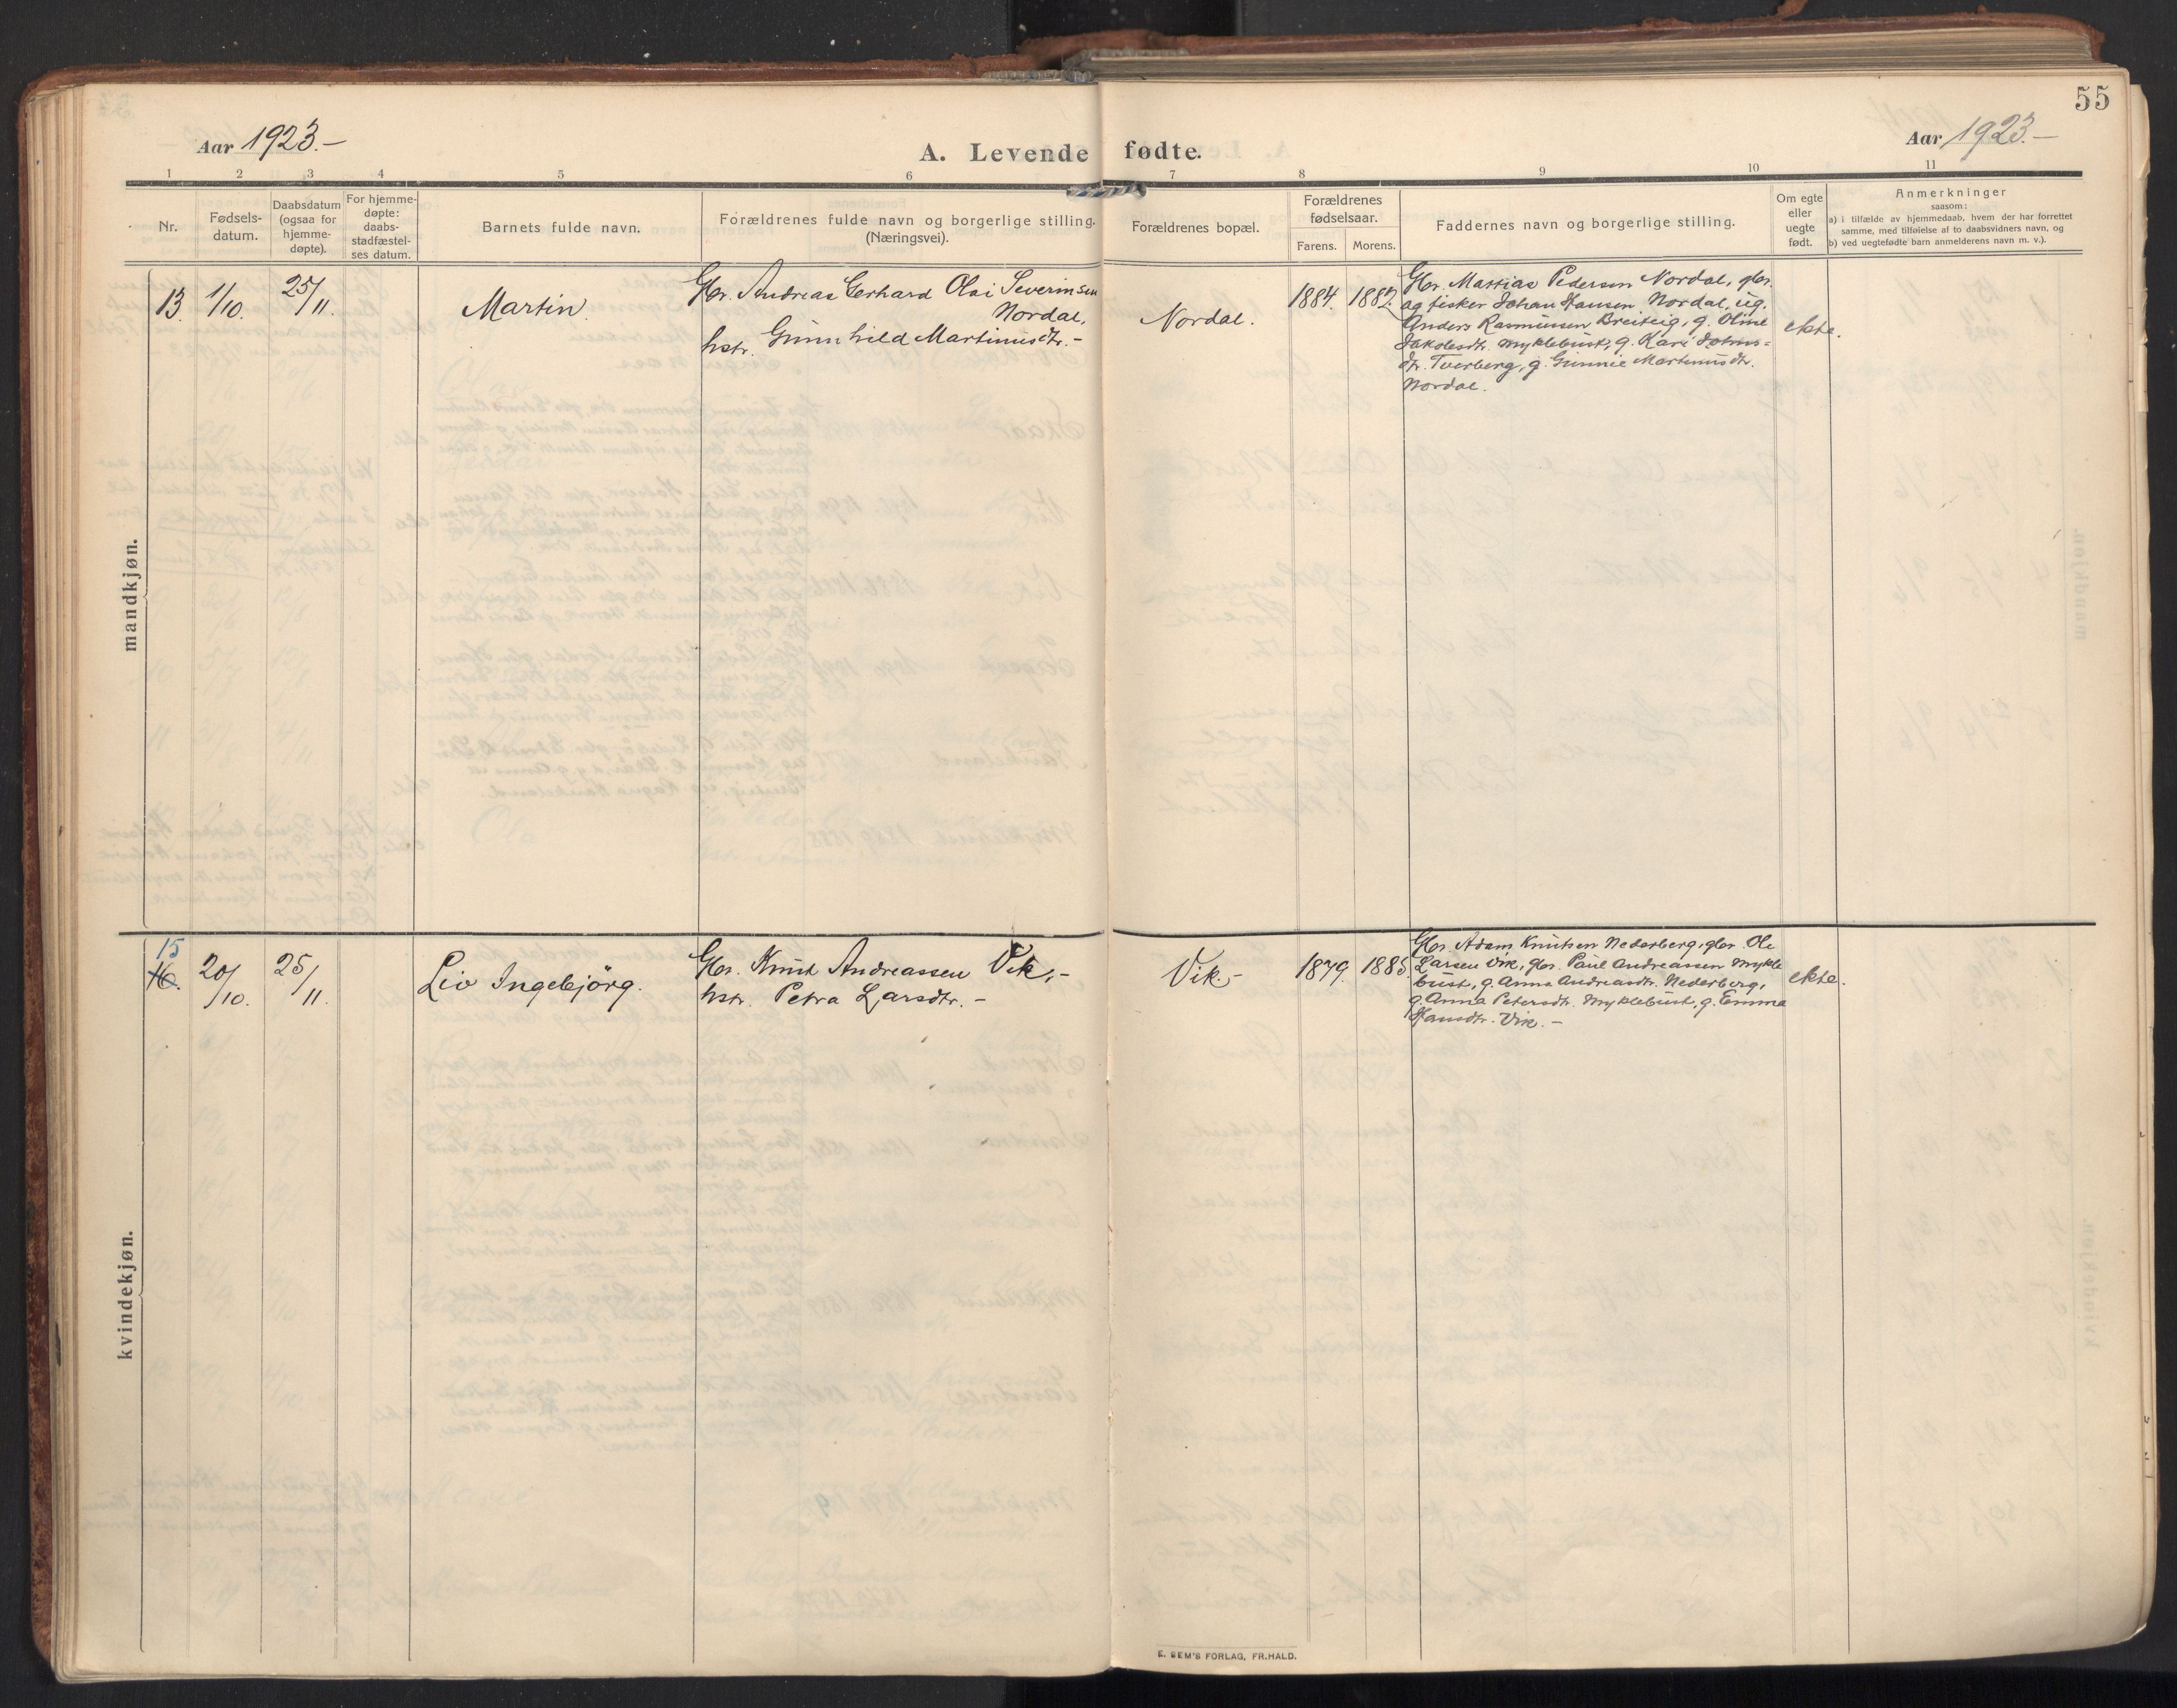 55
Aar 1923.-
A. Levende fødte.
Aar 1923.-
1 2 3 4 5 6 7 8 9 10 11
Nr.
Fødsels-
datum.
Daabsdatum
(ogsaa for
hjemme-
døpte).
For hjemme-
døpte:
daabs-
stadfæstel-
ses datum.
Barnets fulde navn.
Forældrenes fulde navn og borgerlige stilling.
(Næringsvei).
Forældrenes bopæl.
Forældrenes
fødselsaar.
Farens. Morens.
Faddernes navn og borgerlige stilling.
Om egte
eller
uegte
født.
Anmerkninger
saasom:
a) i tilfælde av hjemmedaab, hvem der har forrettet
samme, med tilføielse af to daabsvidners navn, og
b) ved uegtefødte barn anmelderens navn m. v.).
mandkjøn.
13. 1/10. 25/11.
Martin.
Gbr. Andreas Gerhard Olai Severinsen
Nordal,
hstr. Gunnhild Martinusdtr.-
Nordal.
1884. 1882.
Gbr. Mattias Pedersen Nordal, gbr.
og fisker Johan Hansen Nordal, ug.
Anders Rasmussen Breiteig, g. Oline
Jakobsdtr. Myklebust, g. Kari Johns-
dtr. Tverberg, g. Gunnie Martinusdtr.
Nordal.
ekte.
kvindekjøn.
15
16. 20/10. 25/11.
Liv Ingebjörg.
Gbr. Knut Andreassen Vik,-
hstr. Petra Larsdtr.-
Vik.-
1879. 1885.
Gbr. Adam Knutsen Nederberg, gbr. Ole
Larsen Vik, gbr. Paul Andreassen Mykle
bust, g. Anna Andreasdtr. Nederberg,
g. Anna Petersdtr. Myklebust, g. Emma
Hansdtr. Vik.-
ekte.
E. SEM'S FORLAG, FR.HALD.